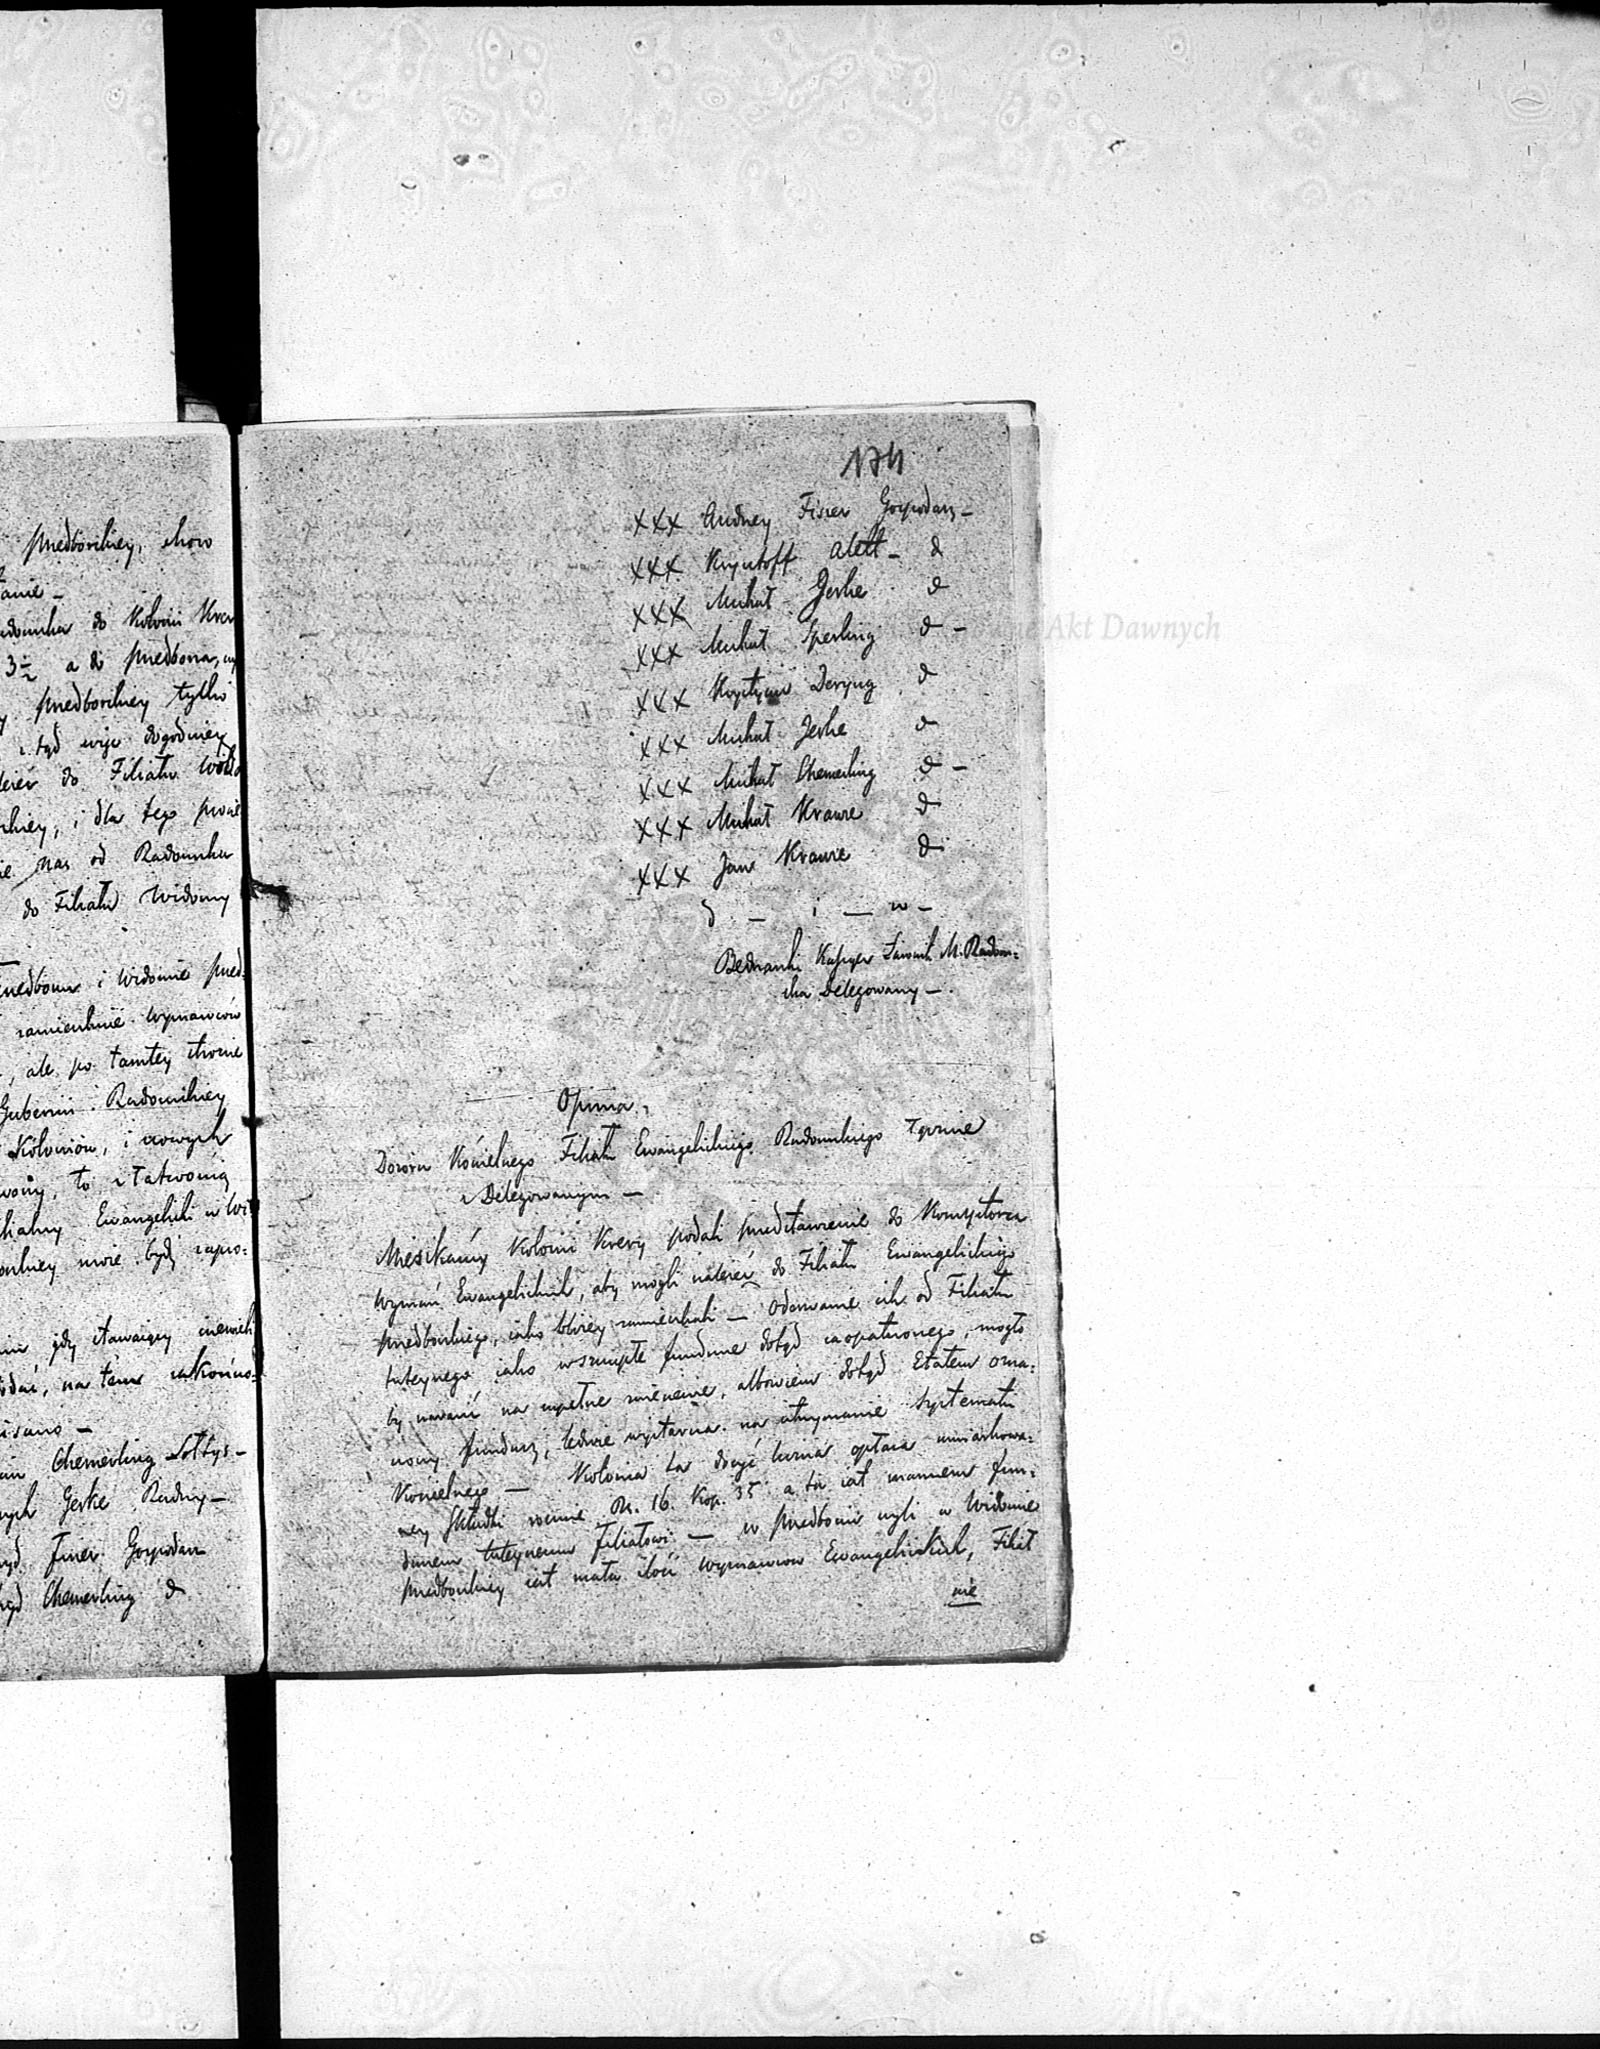 przedborskiey, chow
anie –
adomska do Kolonii Krer
3½ a do przedborza, czy
przedborskiey tylko
ztąd więc dogodniey
leżeć do Filiału Wido
rskiey, i dla tego prosie
nas od Radomska
do Filiału Widomy
rzedborzu i Widomie pred-
zamieszkuie Wyznawców
, ale po tamtey stronie
Gubernii Radomskiey
Kolonióm, i nowych
to z łatwością
lialny Ewangelicki w Wi
orskiey może bydź zapro-
gdy stawaiący niewieli
odać, na tém zakończo-
isano –
Chemerling Sołtys –
Gerke Radny –
Fiszer Gospodarz
Chemerling d
174
XXX Andrzey Fiszer Gospodarz –
XXX Krysztoff Alett – d
XXX Michał Jerke d
XXX Michał Sperling d –
XXX Krystyan Deryng d
XXX Michał Jerke d
XXX Michał Chemerling d –
XXX Michał Krauze d
XXX Jan Krauze d
d – i – w –
Bednarski Kasper Ławnik M. Radom-
ska Delegowany –.
Opinia,
Dozoru Kościelnego Filiału Ewangelickiego Radomskiego łącznie
z Delegowanym –
Mieszkańcy Kolonii Krery podali przedstawienie do Konsystorza
Wyznań Ewangelickich, aby mogli należeć do Filiału Ewangelickiego
przedborskiego, iako bliżey zamieszkali – Oderwanie ich od Filiału
tuteyszego iako w szczupłe fundusze dotąd zaopatrzonego, mogło
by narazić na zupełne zniszczenie, albowiem dotąd Etatem ozna-
czony fundusz, ledwie wystarcza na utrzymanie Systematu
Kościelnego – Kolonia ta dosyć liczna opłaca umiarkowa-
ney Składki rocznie Rs. 16. Kop. 35 a ta iest znacznem fun-
duszem tuteyszemu Filiałowi – w Przedborzu czyli w Widomie
przedborskiey iest mała ilość Wyznawców Ewangelickich, Filiał
nie
Akt Dawnych